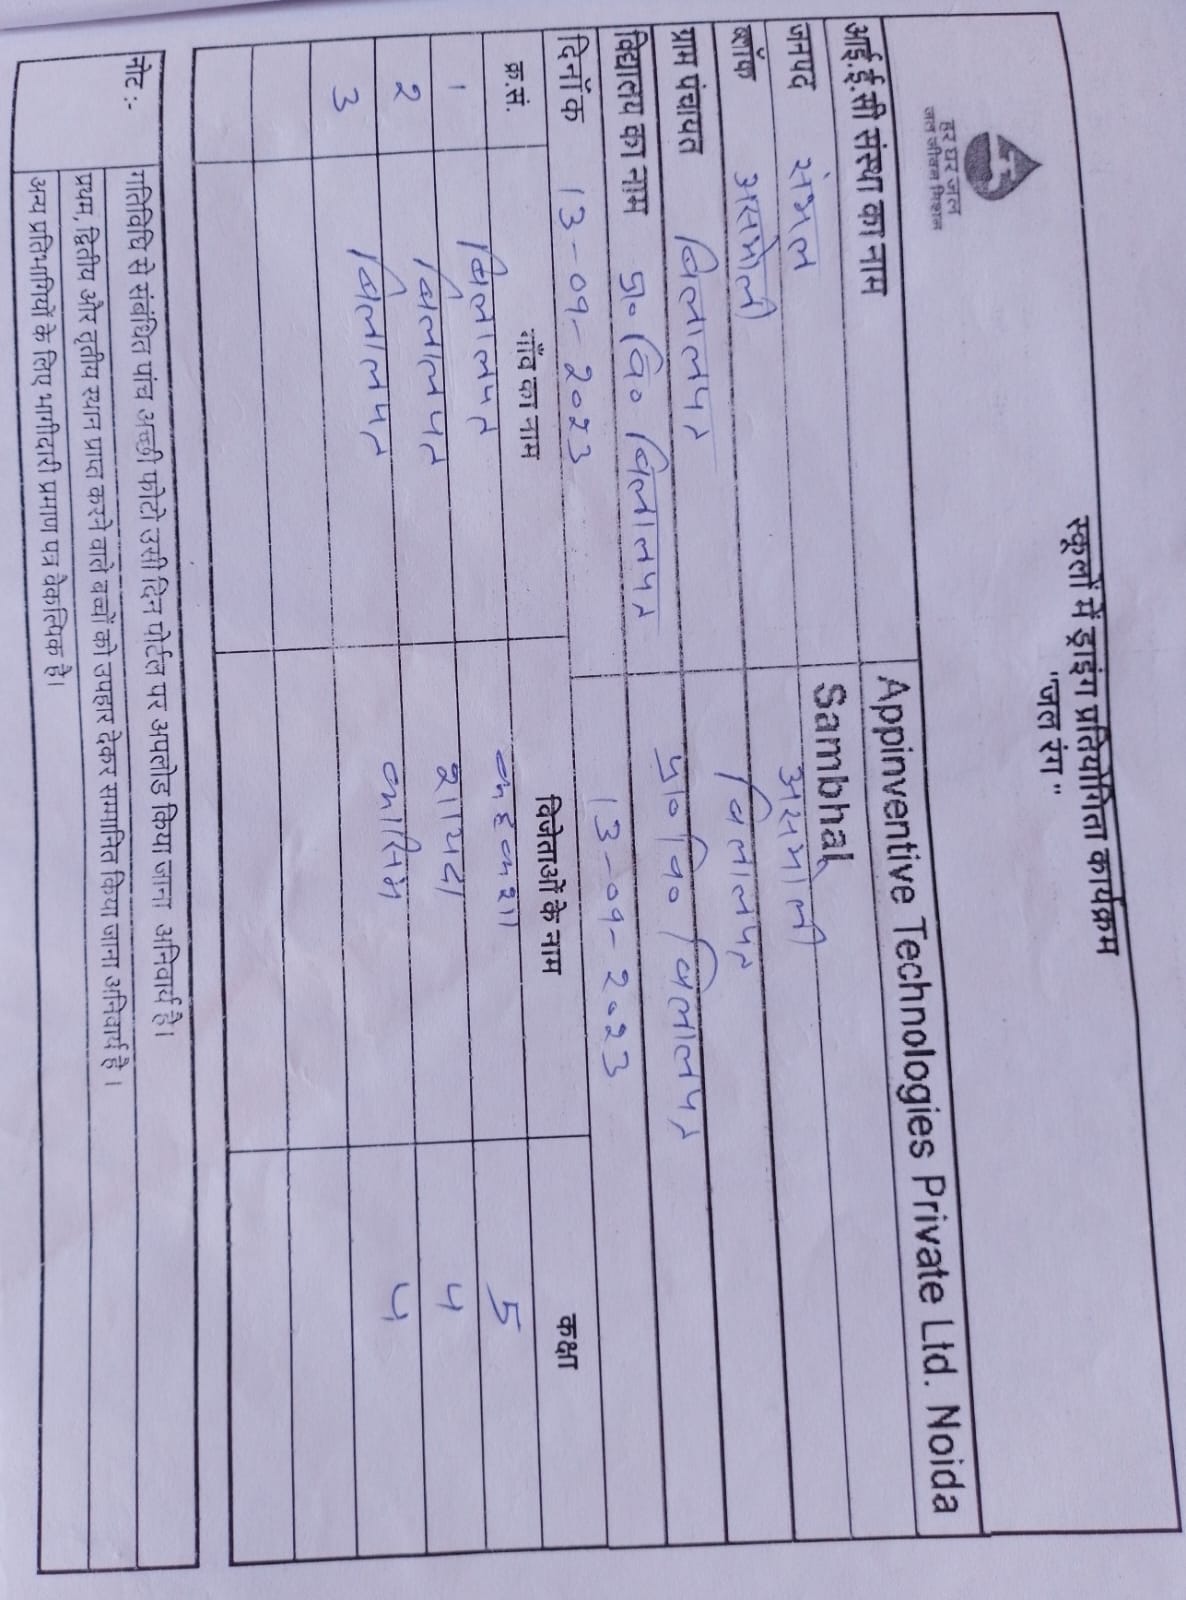 स्कूलों में ड्राइंग प्रतियोगिता कार्यक्रम
"जल रंग"
हर घर जल
जल जीवन मिशन
आई.ई.सी संस्था का नाम Appinventive Technologies Private Ltd. Noida
जनपद संभल Sambhal
ब्लॉक असमोली असमोली
ग्राम पंचायत विलालपत विलालपत
विद्यालय का नाम प्रा० वि० विलालपत प्रा० वि० विलालपत
दिनाँक 13-09-2023 13-09-2023
क्र.सं. गाँव का नाम विजेताओं के नाम कक्षा
1 विलालपत कहकशा 5
2 विलालपत शायदा 4
3 विलालपत कासिम 4
नोट :- गतिविधि से संबंधित पांच अच्छी फोटो उसी दिन पोर्टल पर अपलोड किया जाना अनिवार्य है।
प्रथम, द्वितीय और तृतीय स्थान प्राप्त करने वाले बच्चों को उपहार देकर सम्मानित किया जाना अनिवार्य है ।
अन्य प्रतिभागियों के लिए भागीदारी प्रमाण पत्र वैकल्पिक है।